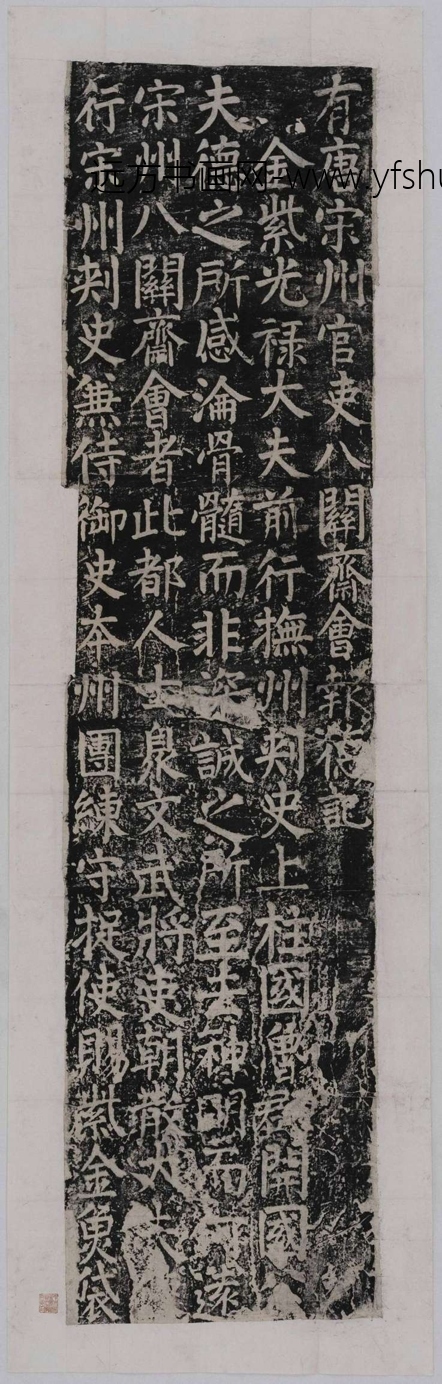 有唐宋州官吏八關齋會報德記
金紫光禄大夫前行撫州刾史上柱國魯郡開國
夫德之所感淪骨髓而非深誠之所至去神明而何遠
宋州八關齋會者此都人士衆文武將吏朝散大夫
行宋州刾史兼侍御史本州團練守捉使賜紫金魚袋
远方书画网-www.yfshu